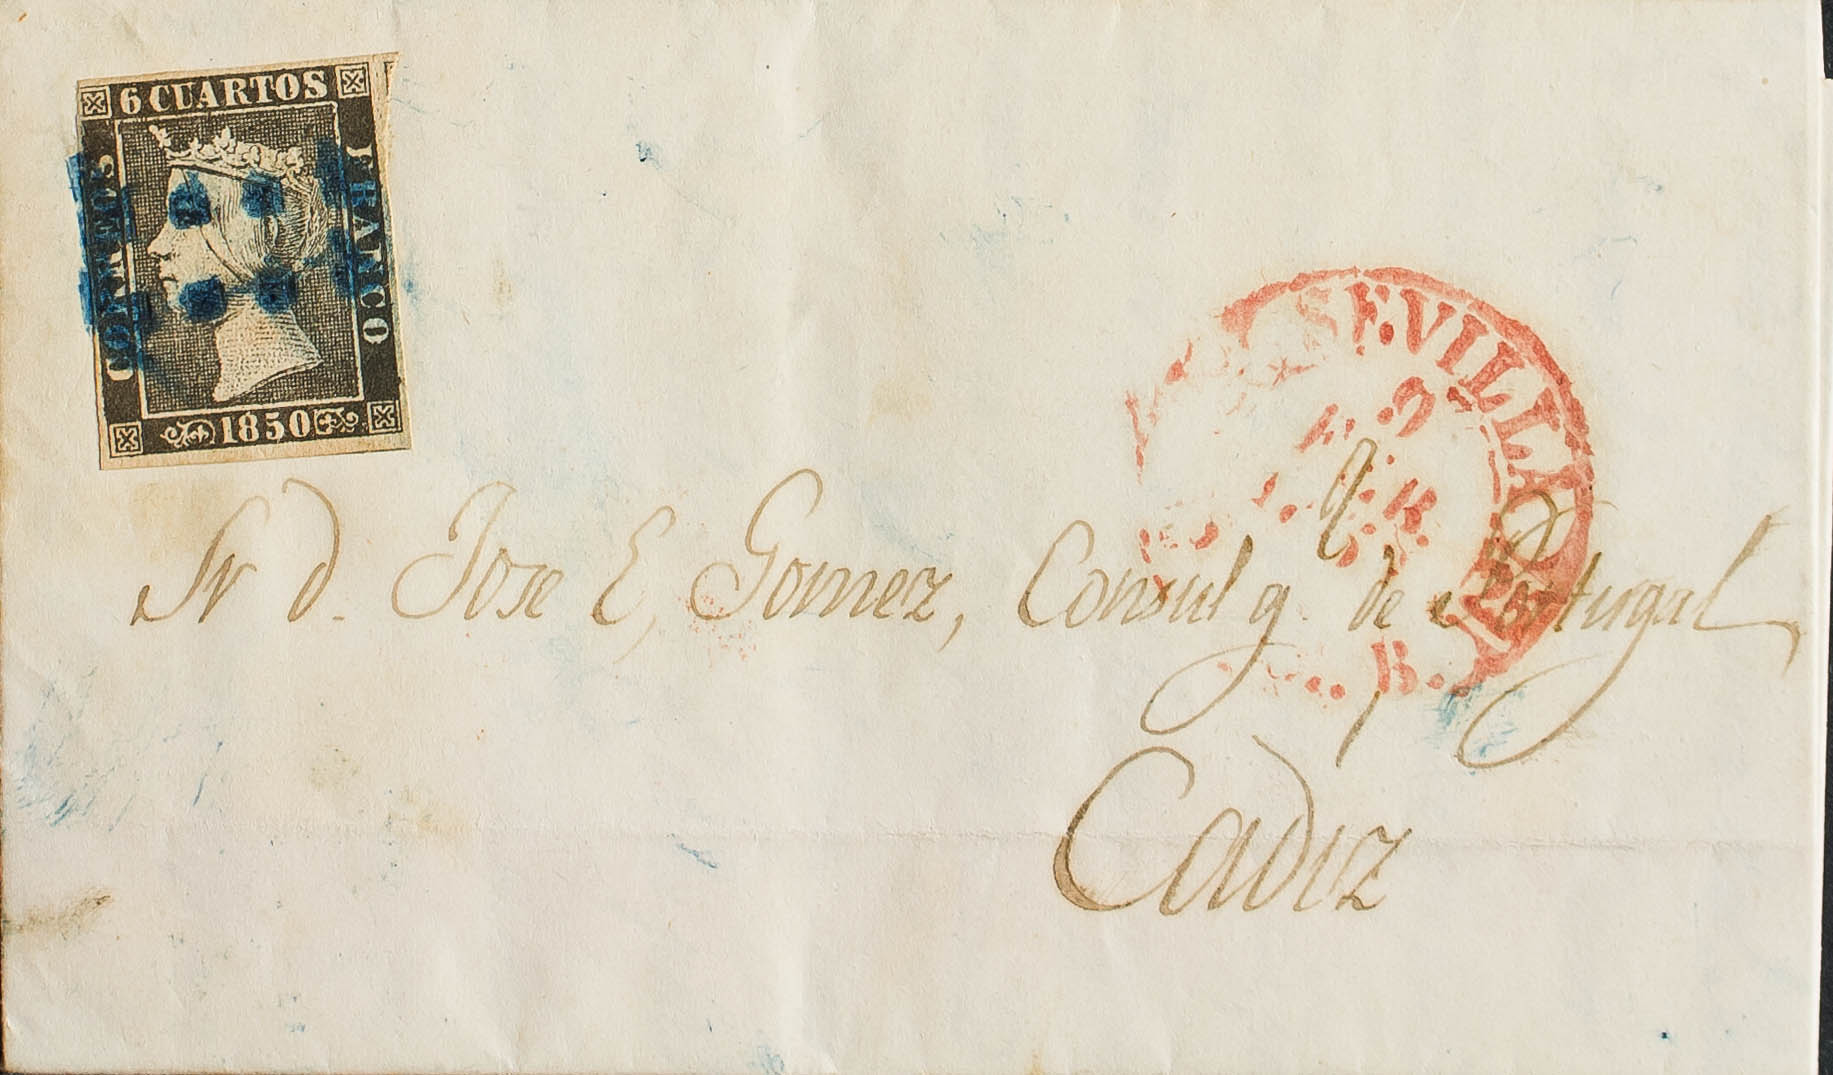 6 CUARTOS
CORREOS
FRANCO
1850
SEVILLA
B.
Sr d. Jose E, Gomez, Consul g. de Portugal
Cadiz